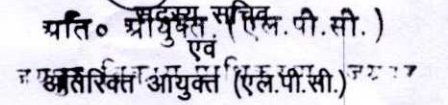 सदस्य सचिव
अति० आयुक्त (एल.पी.सी.)
एवं
अतिरिक्त आयुक्त (एल.पी.सी.)